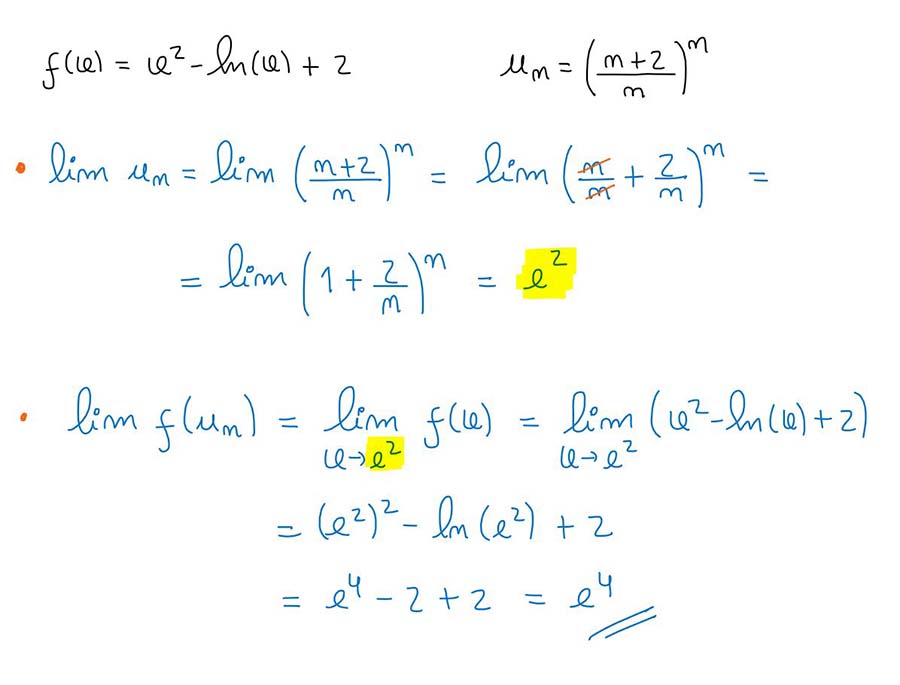 f(x) = x² - ln(x) + 2    uₙ = ((n+2)/n)ⁿ
• lim uₙ = lim ((n+2)/n)ⁿ = lim (n/n + 2/n)ⁿ =
= lim (1 + 2/n)ⁿ = e²
• lim f(uₙ) = lim x→e² f(x) = lim x→e² (x² - ln(x) + 2)
= (e²)² - ln(e²) + 2
= e⁴ - 2 + 2 = e⁴